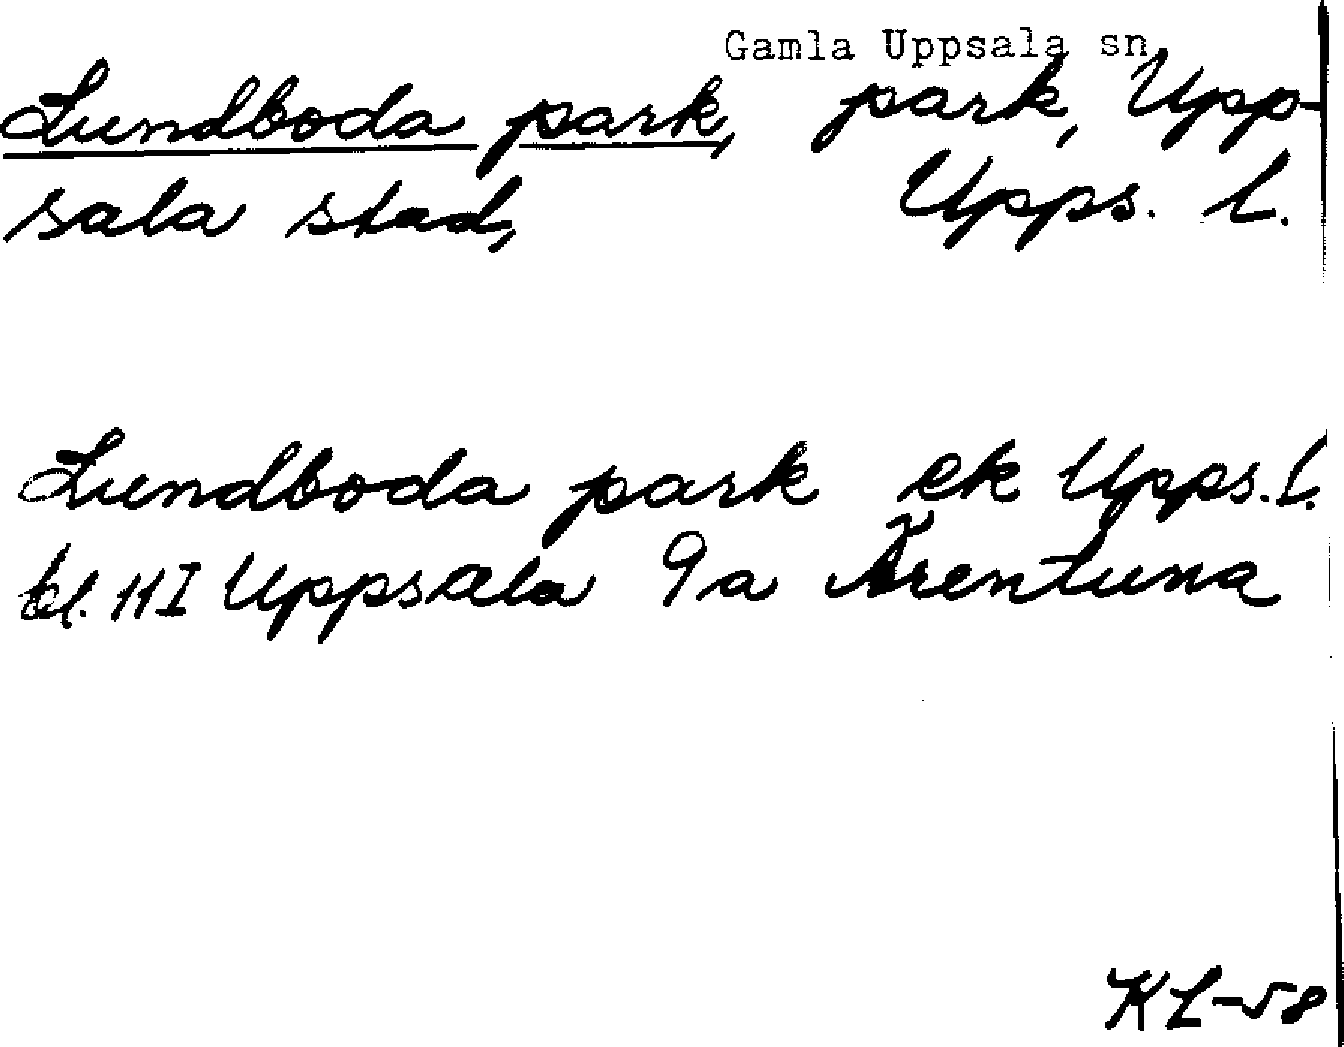 Gamla Uppsala sn
Lundboda park, park, Upp-
sala stad, Upps. l.
Lundboda park ek Upps. l.
bl. 11I Uppsala 9a Ärentuna
KL-58